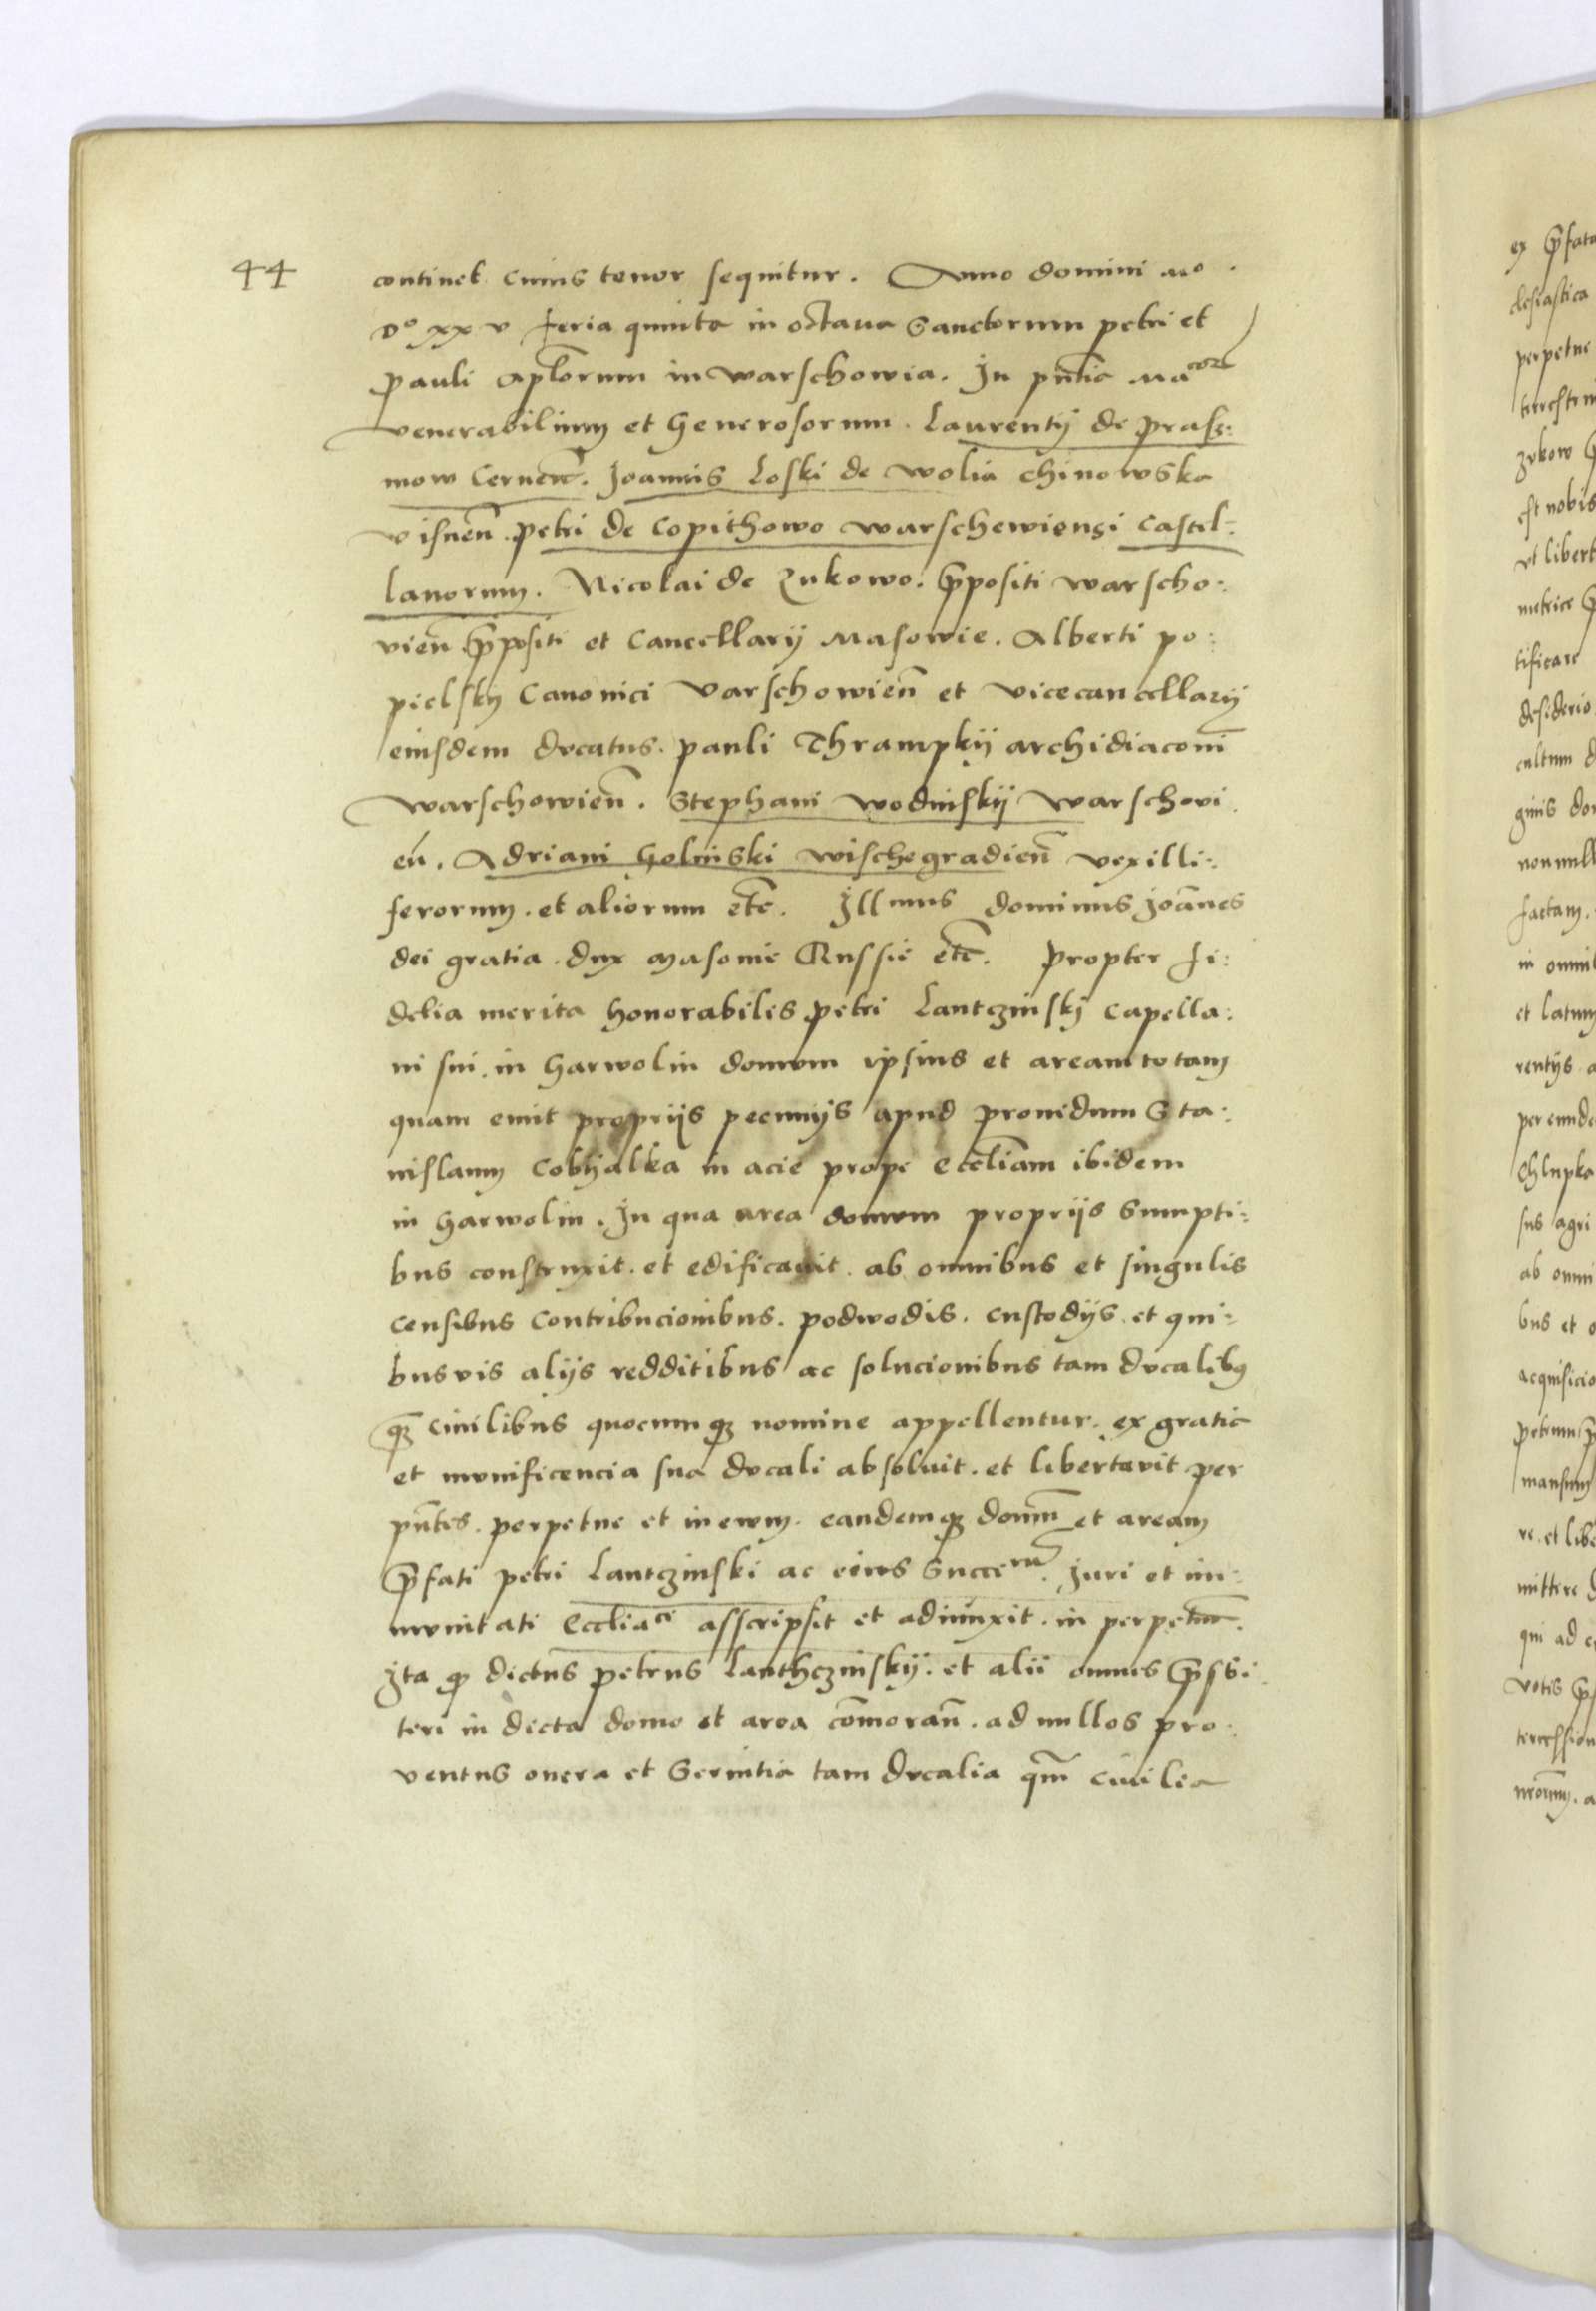 44
continet cuius tenor sequitur. Anno domini Mo.
Do xx v feria quinta in octava Sanctorum petri et
pauli aplorum in warschowia. In pntia Macor
venerabilium et Generosorum. Laurentij de prass:
mow Cernen. Joannis Loski de wolia chinowska
visnen. petri de Copithowo warschewiensi Castel:
lanorum. Nicolai de Zukowo. ppositi warscho:
vien. ppositi et Cancellarij Masowie. Alberti po:
pielsky Canonici varschowien et vicecancellarij
eiusdem ducatus. pauli Thrampkij archidiaconi
warschowien. Stephani wodinskij warschovi
en. Adriani Golniski wischegradien vexilli:
ferorum. et aliorum etc. Illmus dominus Joanes
dei gratia. dux Masovie Russie etc. propter fi:
delia merita honorabiles petri Lantczinskj Capella:
ni sui. in Garwolin domum ipsius et aream totam
quam emit proprijs pecunijs apud providum Sta:
nislaum Cobyalka in acie prope eccliam ibidem
in Garwolin. In qua area domum proprijs Sumpti:
bus construxit. et edificavit. ab omnibus et singulis
censibus Contribucionibus. podwodis. custodijs. et qui:
busvis alijs redditibus ac solucionibus tam ducalibus
q civilibus quocumq nomine appellentur. ex gratia
et munificencia sua ducali absoluit. et libertavit per
pntes. perpetue et in ewm. eandemq domum et aream
pfati petri Lantczinski ac eius Succe. Juri et im:
munitati Eccliaci asscripsit et adiunxit. in perpetuum.
Ita q dictus petrus Lanthczinskij. et alii omnes psbi
teri in dicta domo et area comoran. ad nullos pro:
ventus onera et Servitia tam ducalia qm civilia